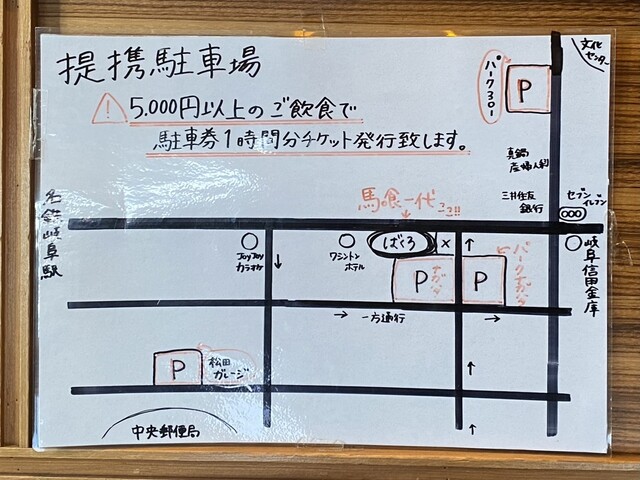 提携駐車場
5.000円以上のご飲食で
駐車券1時間分チケット発行致します。
パーク30-1
P
文化
センター
真鍋
産婦人科
三井住友
銀行
セブン
イレブン
名鉄岐阜駅
馬喰一代
ココ!!
JOYJOY
カラオケ
↓
ワシントン
ホテル
ばくろ
×
↑
岐阜信用金庫
P
P
→
一方通行
→
P
松田
ガレージ
↑
中央郵便局
↑